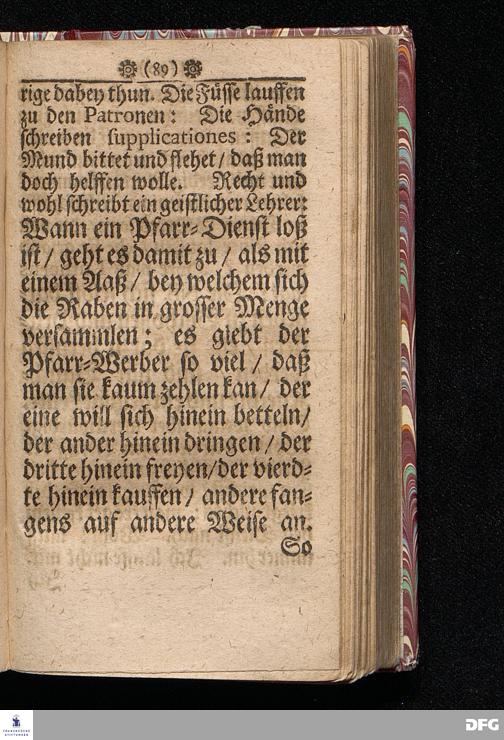 (89)
rige dabey thun. Die Füsse lauffen
zu den Patronen: Die Hände
schreiben supplicationes: Der
Mund bittet und flehet/ daß man
doch helffen wolle. Recht und
wohl schreibt ein geistlicher Lehrer:
Wann ein Pfarr-Dienst loß
ist/ geht es damit zu/ als mit
einem Aaß/ bey welchem sich
die Raben in grosser Menge
versammlen; es giebt der
Pfarr-Werber so viel/ daß
man sie kaum zehlen kan/ der
eine will sich hinein betteln/
der ander hinein dringen/ der
dritte hinein freyen/der vierd-
te hinein kauffen/ andere fan-
gens auf andere Weise an.
So
FRANCKESCHE
STIFTUNGEN
DFG